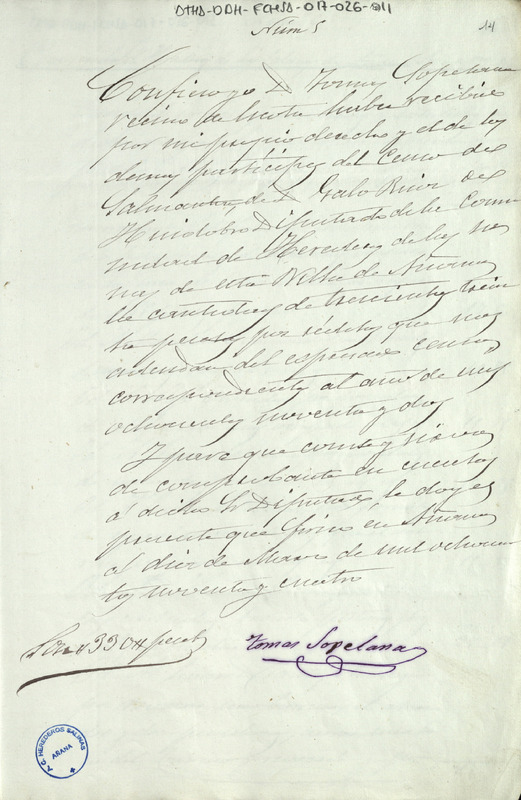 DTHA-DAH-FCHSA-017-026-011
14
Num 5
Confieso yo D. Tomas Sopelana
vecino de haber recibido
por mi propio derecho y el de los
demas participes del Censo de
Salmanton de D. Galo Ruiz de
Huidobro Diputado de la Comu
nidad de Herederos de las sa
nas de esta Villa de Añana
la cantidad de trescientas trein
ta pesetas por reditos que nos
adeudan del espresado censo
correspondiente al año de mil
ochocientos noventa y dos
Y para que conste y sirva
de comprobante en cuentas
á dicho Sr Diputado, le doy el
presente que firmo en Añana
á diez de Marzo de mil ochocien
tos noventa y cuatro
Son 330 pesetas
Tomas Sopelana
HEREDEROS SALINAS
AÑANA